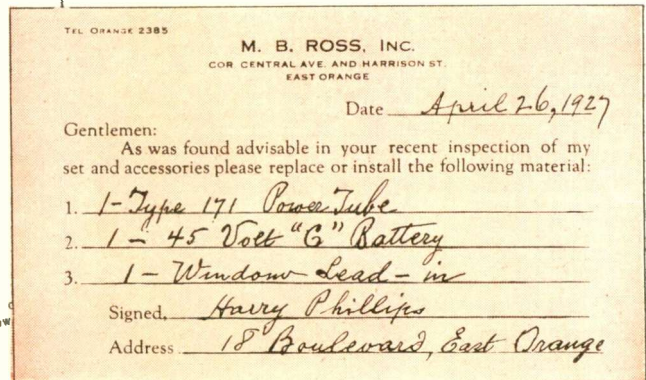 TEL ORANGE 2385
M. B. ROSS, INC.
COR CENTRAL AVE. AND HARRISON ST.
EAST ORANGE
Date April 26, 1927
Gentlemen:
As was found advisable in your recent inspection of my
set and accessories please replace or install the following material:
1. 1-Type 171 Power Tube
2. 1 - 45 Volt "C" Battery
3. 1 - Window Lead-in
Signed, Harry Phillips
Address 18 Boulevard, East Orange